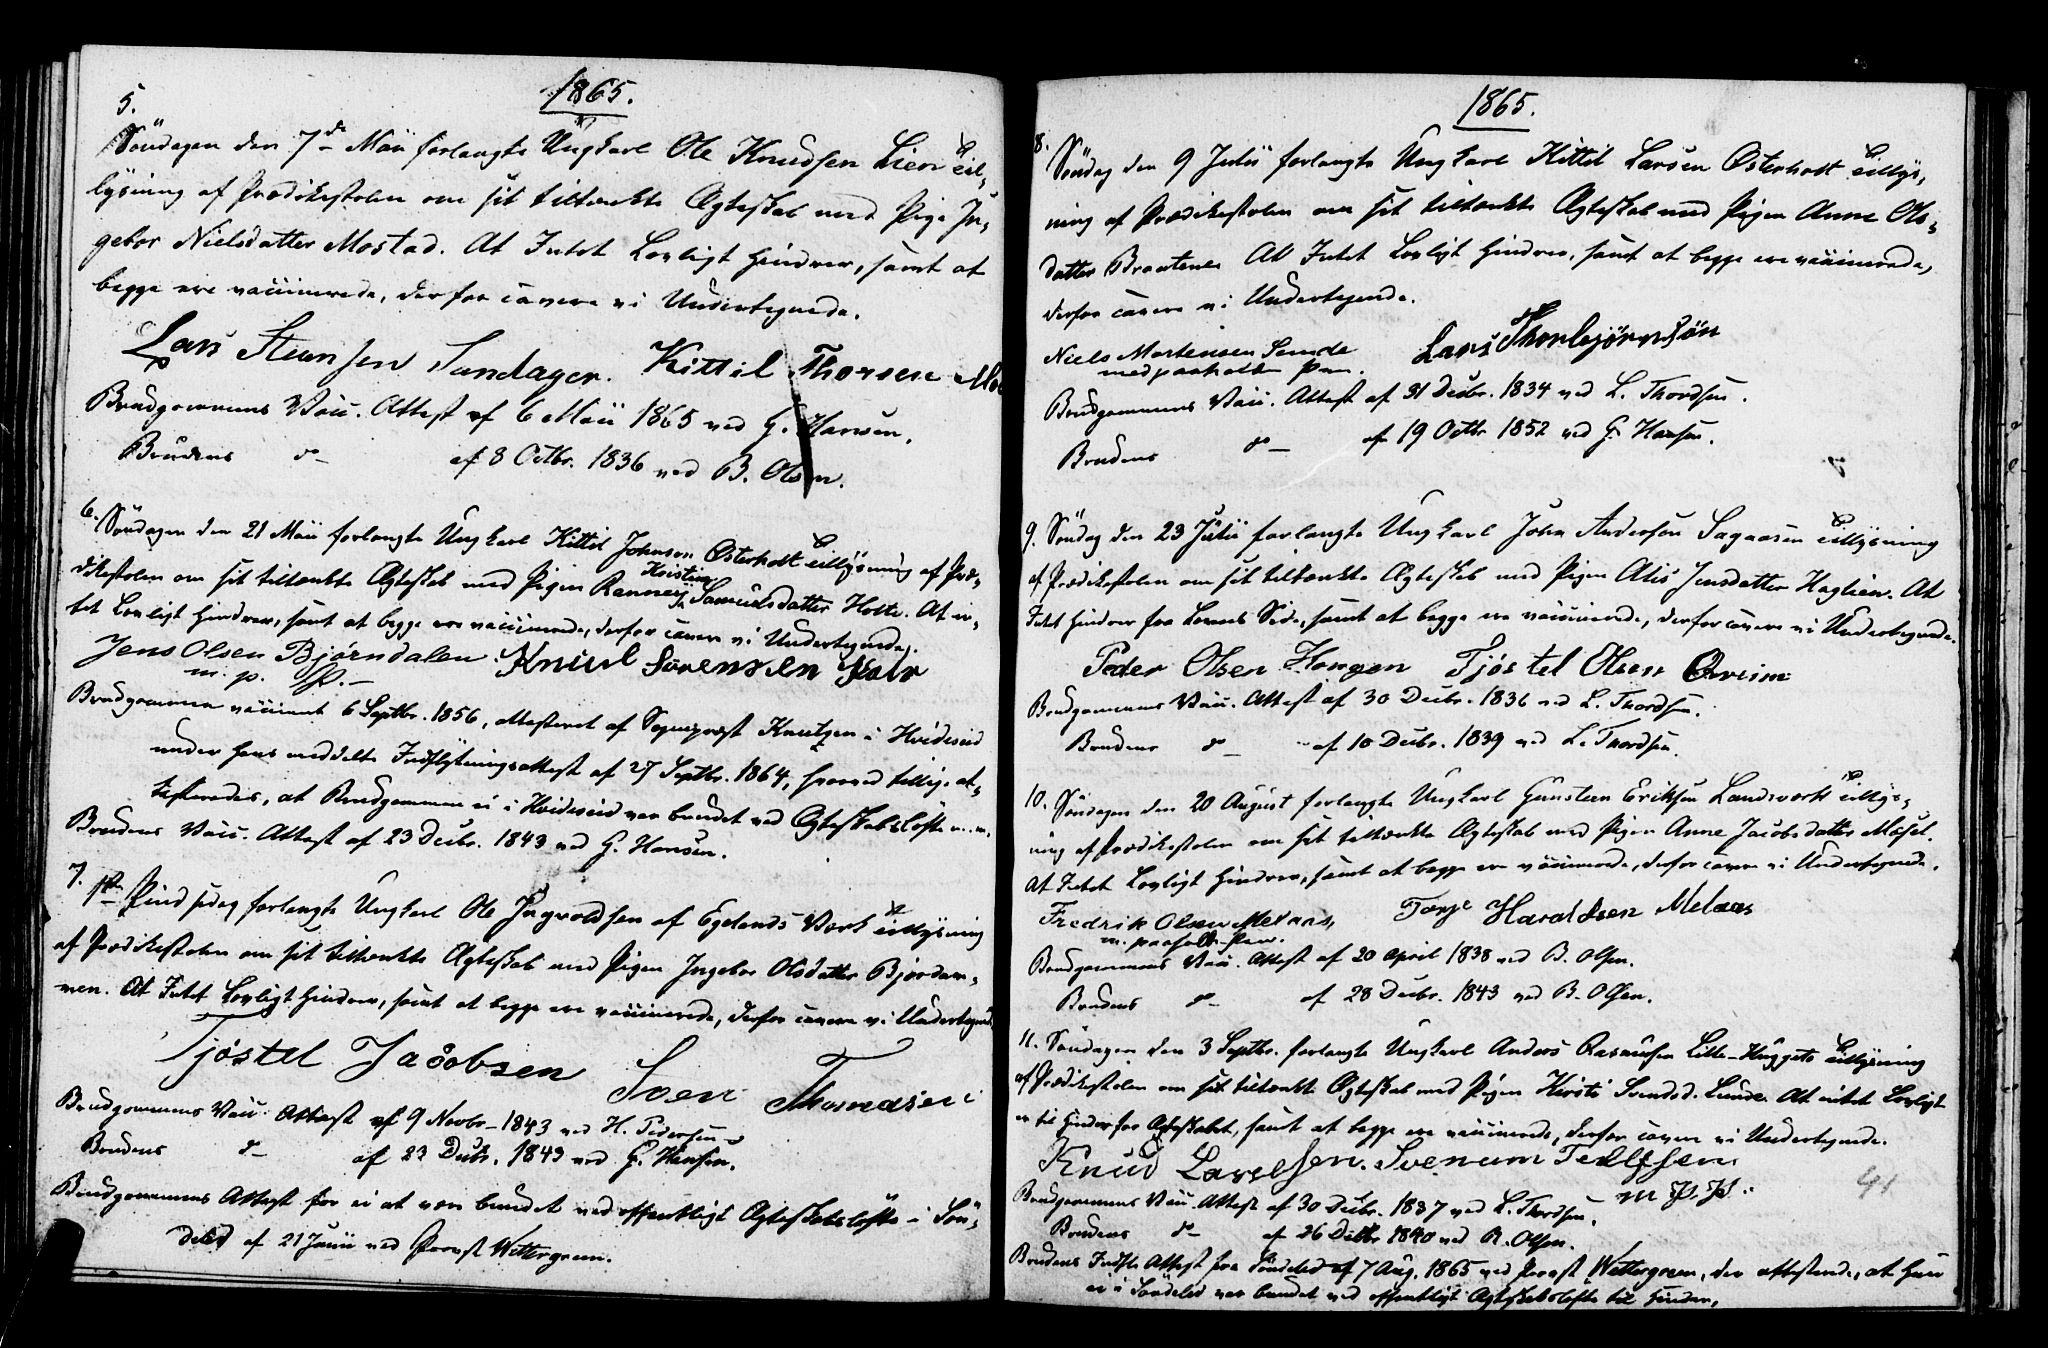 1865.
5.
Søndagen den 7de Maii forlangte Ungkarl Ole Knudsen Lien Til-
lysning af Prædikestolen om sit tiltænkte Ægteskab med Pige In-
gebor Nielsdatter Mostad. At Intet Lovligt hindrer, samt at
begge ere vaccinerede, derfor cavere vi Undertegnede.
Lars Steansen Sundager. Kittil Thorsen Mo
Brudgommens Vacc. Attest af 6 Maii 1865 ved G. Hansen.
Brudens do af 8 Octbr. 1836 ved B. Olsen.
6. Søndagen den 21 Maii forlangte Ungkarl Kittil Johnsen Østerholt Tillysning af Præ-
dikestolen om sit tiltænkte Ægteskab med Pigen Ranney Kristine Samuelsdatter Holte. At in-
tet Lovligt hindrer, samt at begge ere vaccinerede, derfor cavere vi Undertegnede.
Jens Olsen Bjørndalen. Knud Sørensen
m. p. P.
Brudgommen vaccineret 6 Septbr. 1856, attesteret af Sognepræst Knutzen i Hvideseid
under hans meddelte Indflytningsattest af 27 Septbr. 1864, hvorved tillige at-
testeredes, at Brudgommen ei i Hvideseid var bundet ved Ægteskabsløfte m.m.
Brudens Vacc. Attest af 23 Decbr. 1843 ved G. Hansen.
7. 1ste Pindsedag forlangte Ungkarl Ole Ingvoldsen af Egelands Værk Tillysning
af Prædikestolen om sit tiltænkte Ægteskab med Pigen Ingebor Olsdatter Bjordam-
men. At Intet Lovligt hindrer, samt at begge ere vaccinerede, derfor cavere vi Undertegnede
Tjøstel Jacobsen Sven Thomasen
Brudgommens Vacc. Attest af 9 Novbr. 1843 ved H. Pedersen
Brudens do af 23 Decbr. 1843 ved G. Hansen.
Brudgommens Attest for ei at være bundet ved offentligt Ægteskabsløfte i Søn-
deled af 21 Junii ved Provst Wettergreen.
1865.
8. Søndag den 9 Julii forlangte Ungkarl Kittil Larsen Østerholt Tillys-
ning af Prædikestolen om sit tiltænkte Ægteskab med Pigen Anne Ols-
datter Braatene At Intet Lovligt hindrer, samt at begge ere vaccinerede,
derfor cavere vi Undertegnede.
Niels Mortensen Lunde Lars Thorbjørnsøn
med paaholt Pen.
Brudgommens Vacc. Attest af 31 Decbr. 1834 ved L. Thordsen.
Brudens do af 19 Octbr 1852 ved G. Hansen.
9. Søndag den 23 Julii forlangte Ungkarl John Andersen Sagaasen Tillysning
af Prædikestolen om sit tiltænkte Ægteskab med Pigen Alis Jensdatter Haglien. At
Intet hindrer fra Lovens Side, samt at begge ere vaccinerede, derfor cavere vi Undertegnede.
Peder Olsen Haugen Tjøstel Olsen Øvreim
Brudgommens Vacc. Attest af 30 Decbr. 1836 ved L. Thordsen.
Brudens do af 10 Decbr. 1839 ved L. Thordsen.
10. Søndagen den 20 August forlangte Ungkarl Gunsteen Eriksen Landsverk Tillys-
ning af Prædikestolen om sit tiltænkte Ægteskab med Pigen Anne Jacobsdatter Møsel.
At Intet Lovligt hindrer, samt at begge ere vaccinerede, derfor cavere vi Undertegnede.
Fredrik Olsen Melaas, Torje Haraldsen Melaas
m. paaholt Pen.
Brudgommens Vacc. Attest af 20 April 1838 ved B. Olsen.
Brudens do af 28 Decbr. 1843 ved B. Olsen.
11. Søndagen den 3 Septbr. forlangte Ungkarl Anders Rasmussen Lille-Hugget Tillysning
af Prædikestolen om sit tiltænkte Ægteskab med Pigen Kirsti Svendsd. Lunde. At intet Lovligt
er til Hinder for Ægteskabet, samt at begge ere vaccinerede, derfor cavere vi Undertegnede.
Knud Larsen. Svenum Tellefsen
m. P. P.
41
Brudgommens Vacc. Attest af 30 Decbr. 1837 ved L. Thordsen.
Brudens do af 26 Decbr 1840 ved B. Olsen.
Brudens Indfl. Attest fra Søndeled af 7 Aug. 1865 ved Provst Wettergreen, der attesterede, at hun
ei i Søndeled var bundet ved offentligt Ægteskabsløfte til Hinder.